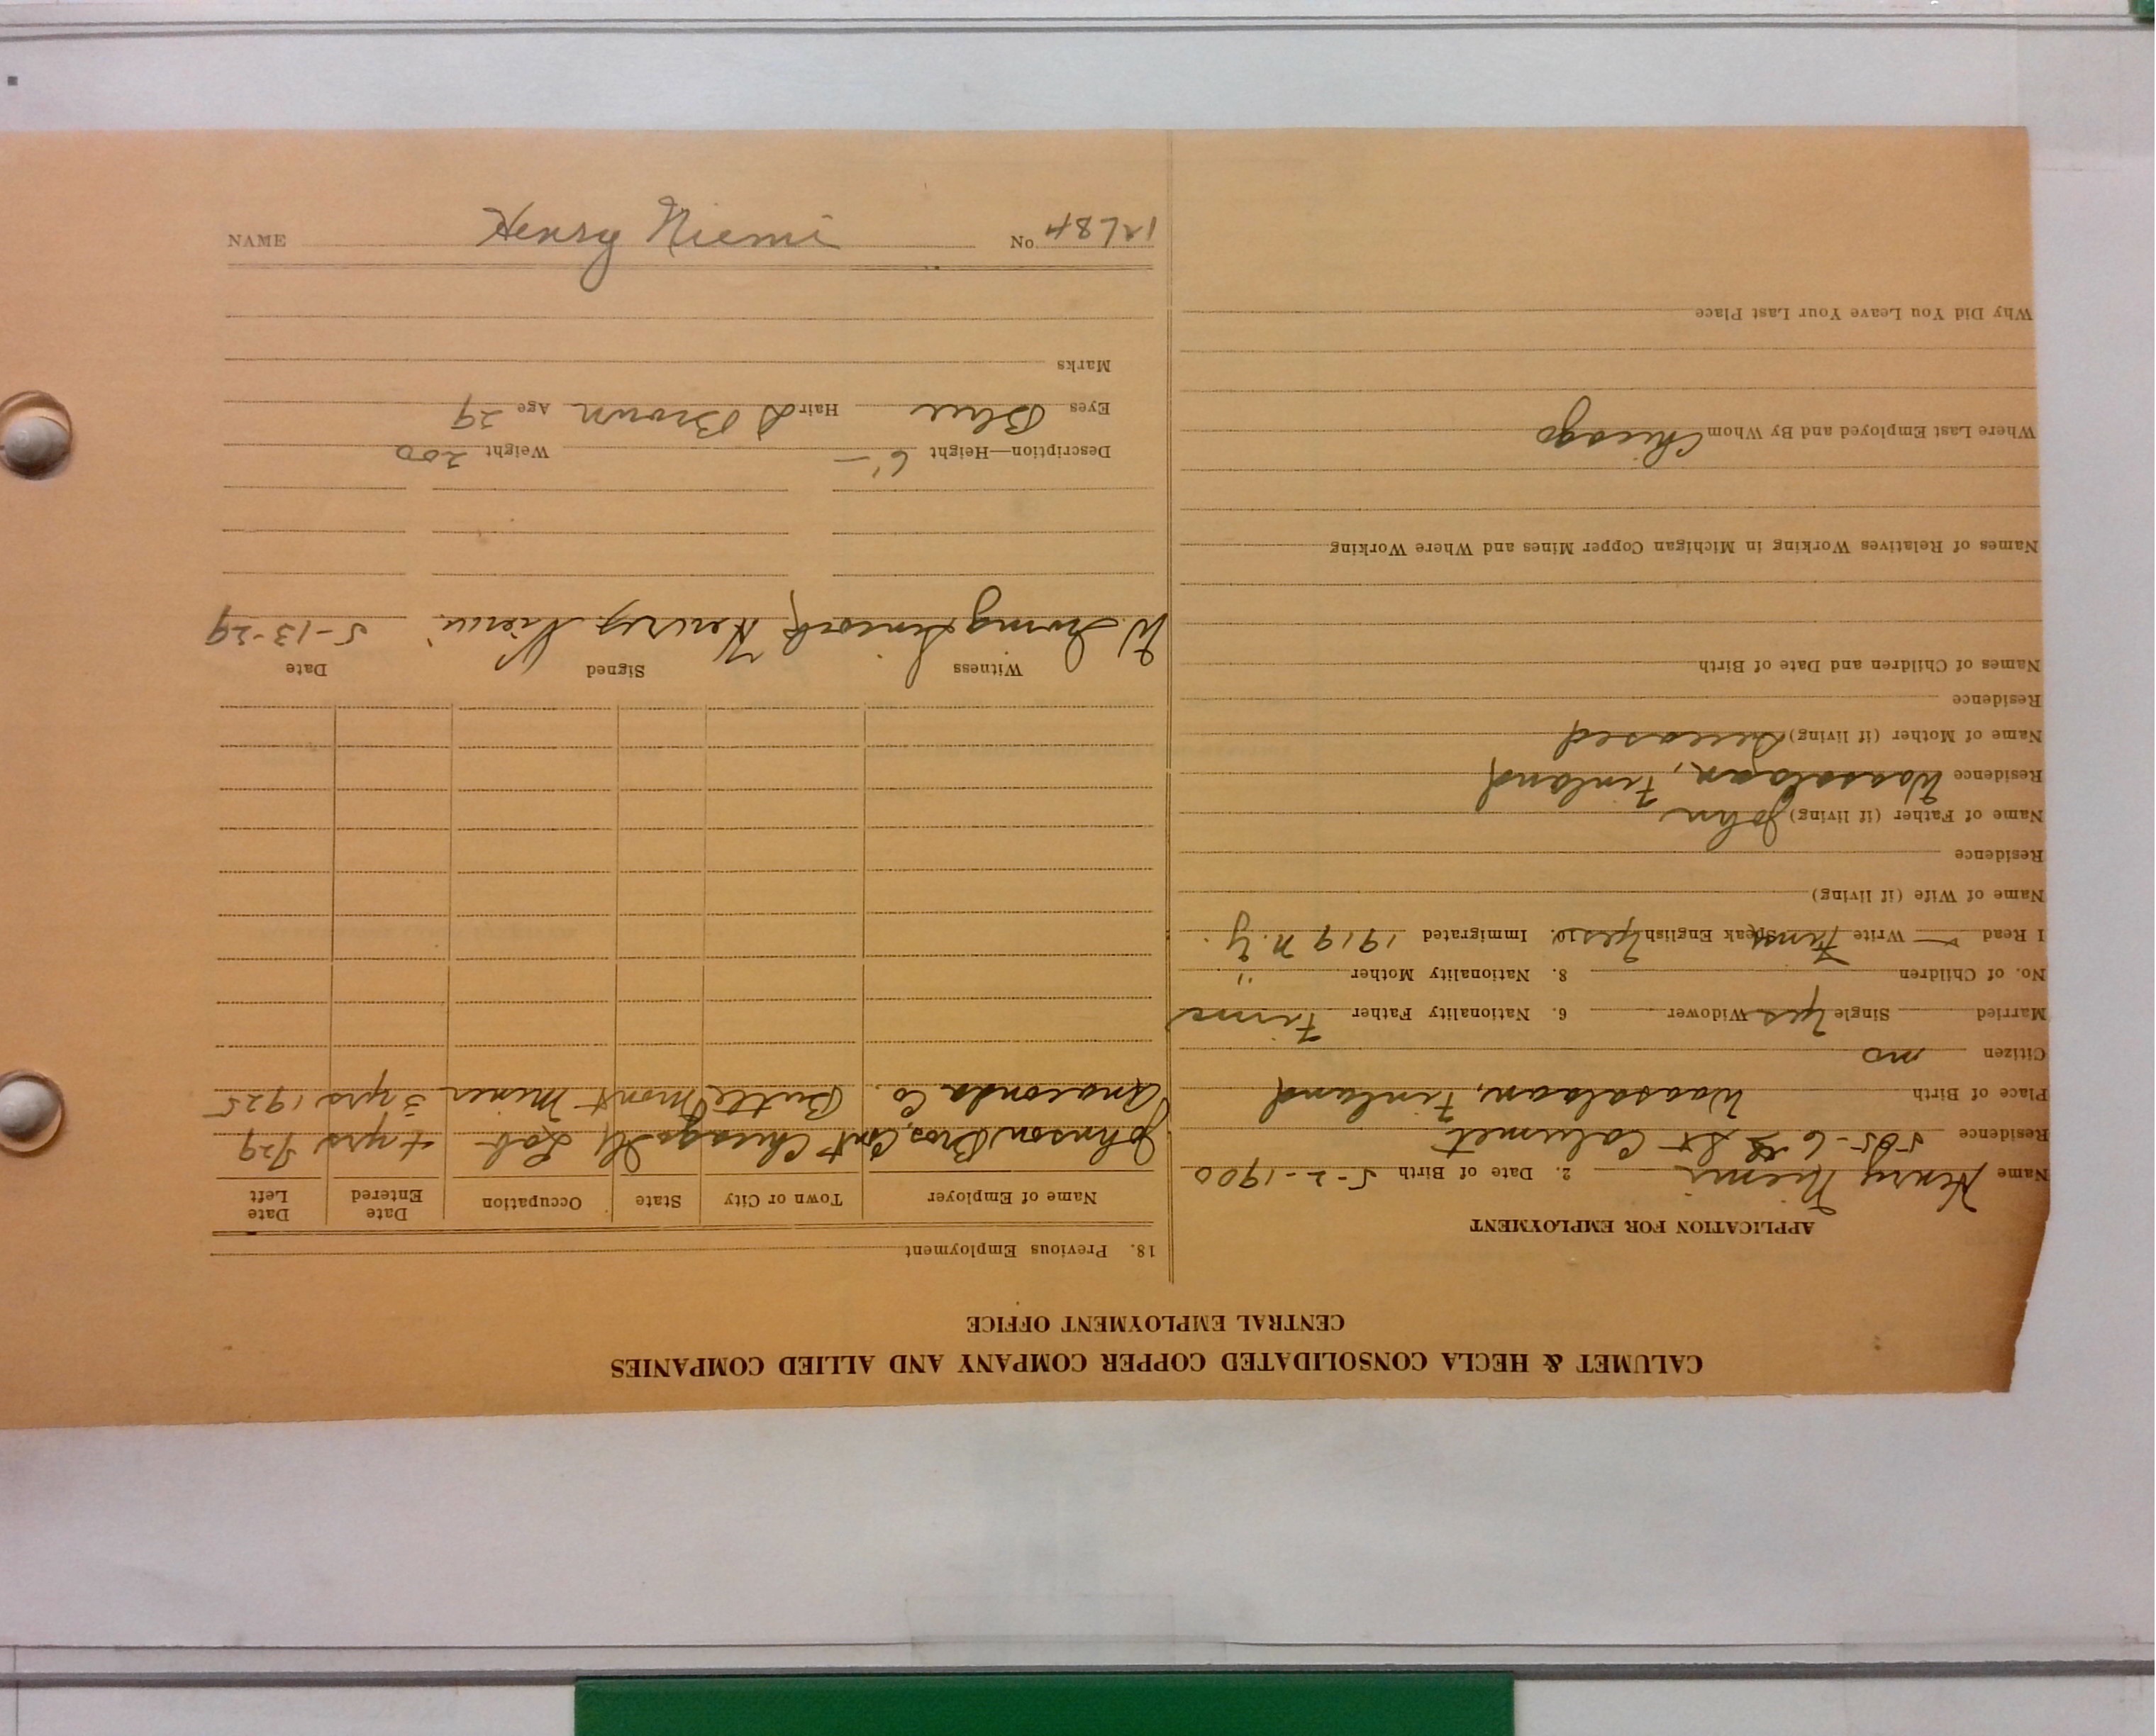 CALUMET & HECLA CONSOLIDATED COPPER COMPANY AND ALLIED COMPANIES
CENTRAL EMPLOYMENT OFFICE
APPLICATION FOR EMPLOYMENT
Name Henry Niemi 2. Date of Birth 5-2-1900
Residence 505-6 St Calumet
Place of Birth Waasalaan, Finland
Citizen no
Married Single Yes Widower 6. Nationality Father Finn
No. of Children 8. Nationality Mother "
I Read Write Finn Speak English Yes 10. Immigrated 1919 N.Y.
Name of Wife (if living)
Residence
Name of Father (if living) John
Residence Waasalaan, Finland
Name of Mother (if living) Deceased
Residence
Names of Children and Date of Birth
Names of Relatives Working in Michigan Copper Mines and Where Working
Where Last Employed and By Whom Chicago
Why Did You Leave Your Last Place
18. Previous Employment
Name of Employer Town or City State Occupation Date Entered Date Left
Johnson Bros, Cont Chicago Ill Lab 4 yrs 1929
Anaconda Co. Butte Mont Miner 3 yrs 1925
Witness Signed Date
W. Henry Niemi 5-13-29
Description—Height 6'— Weight 200
Eyes Blue Hair D Brown Age 29
Marks
NAME Henry Niemi No 12684